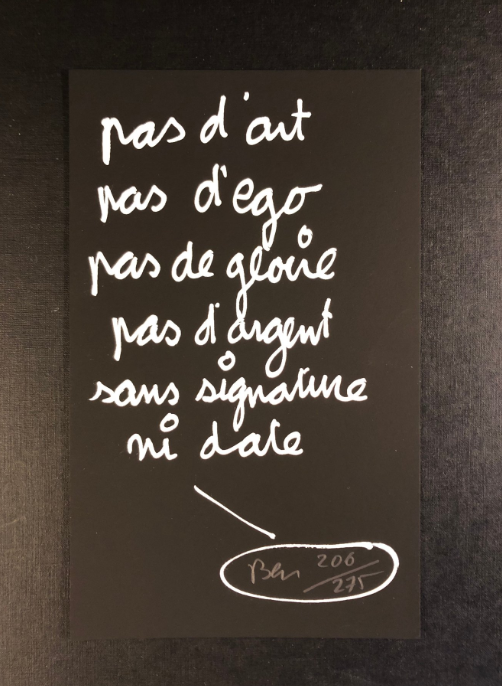 pas d'art
pas d'ego
pas de gloire
pas d'argent
sans signature
ni date
Ben 206/275